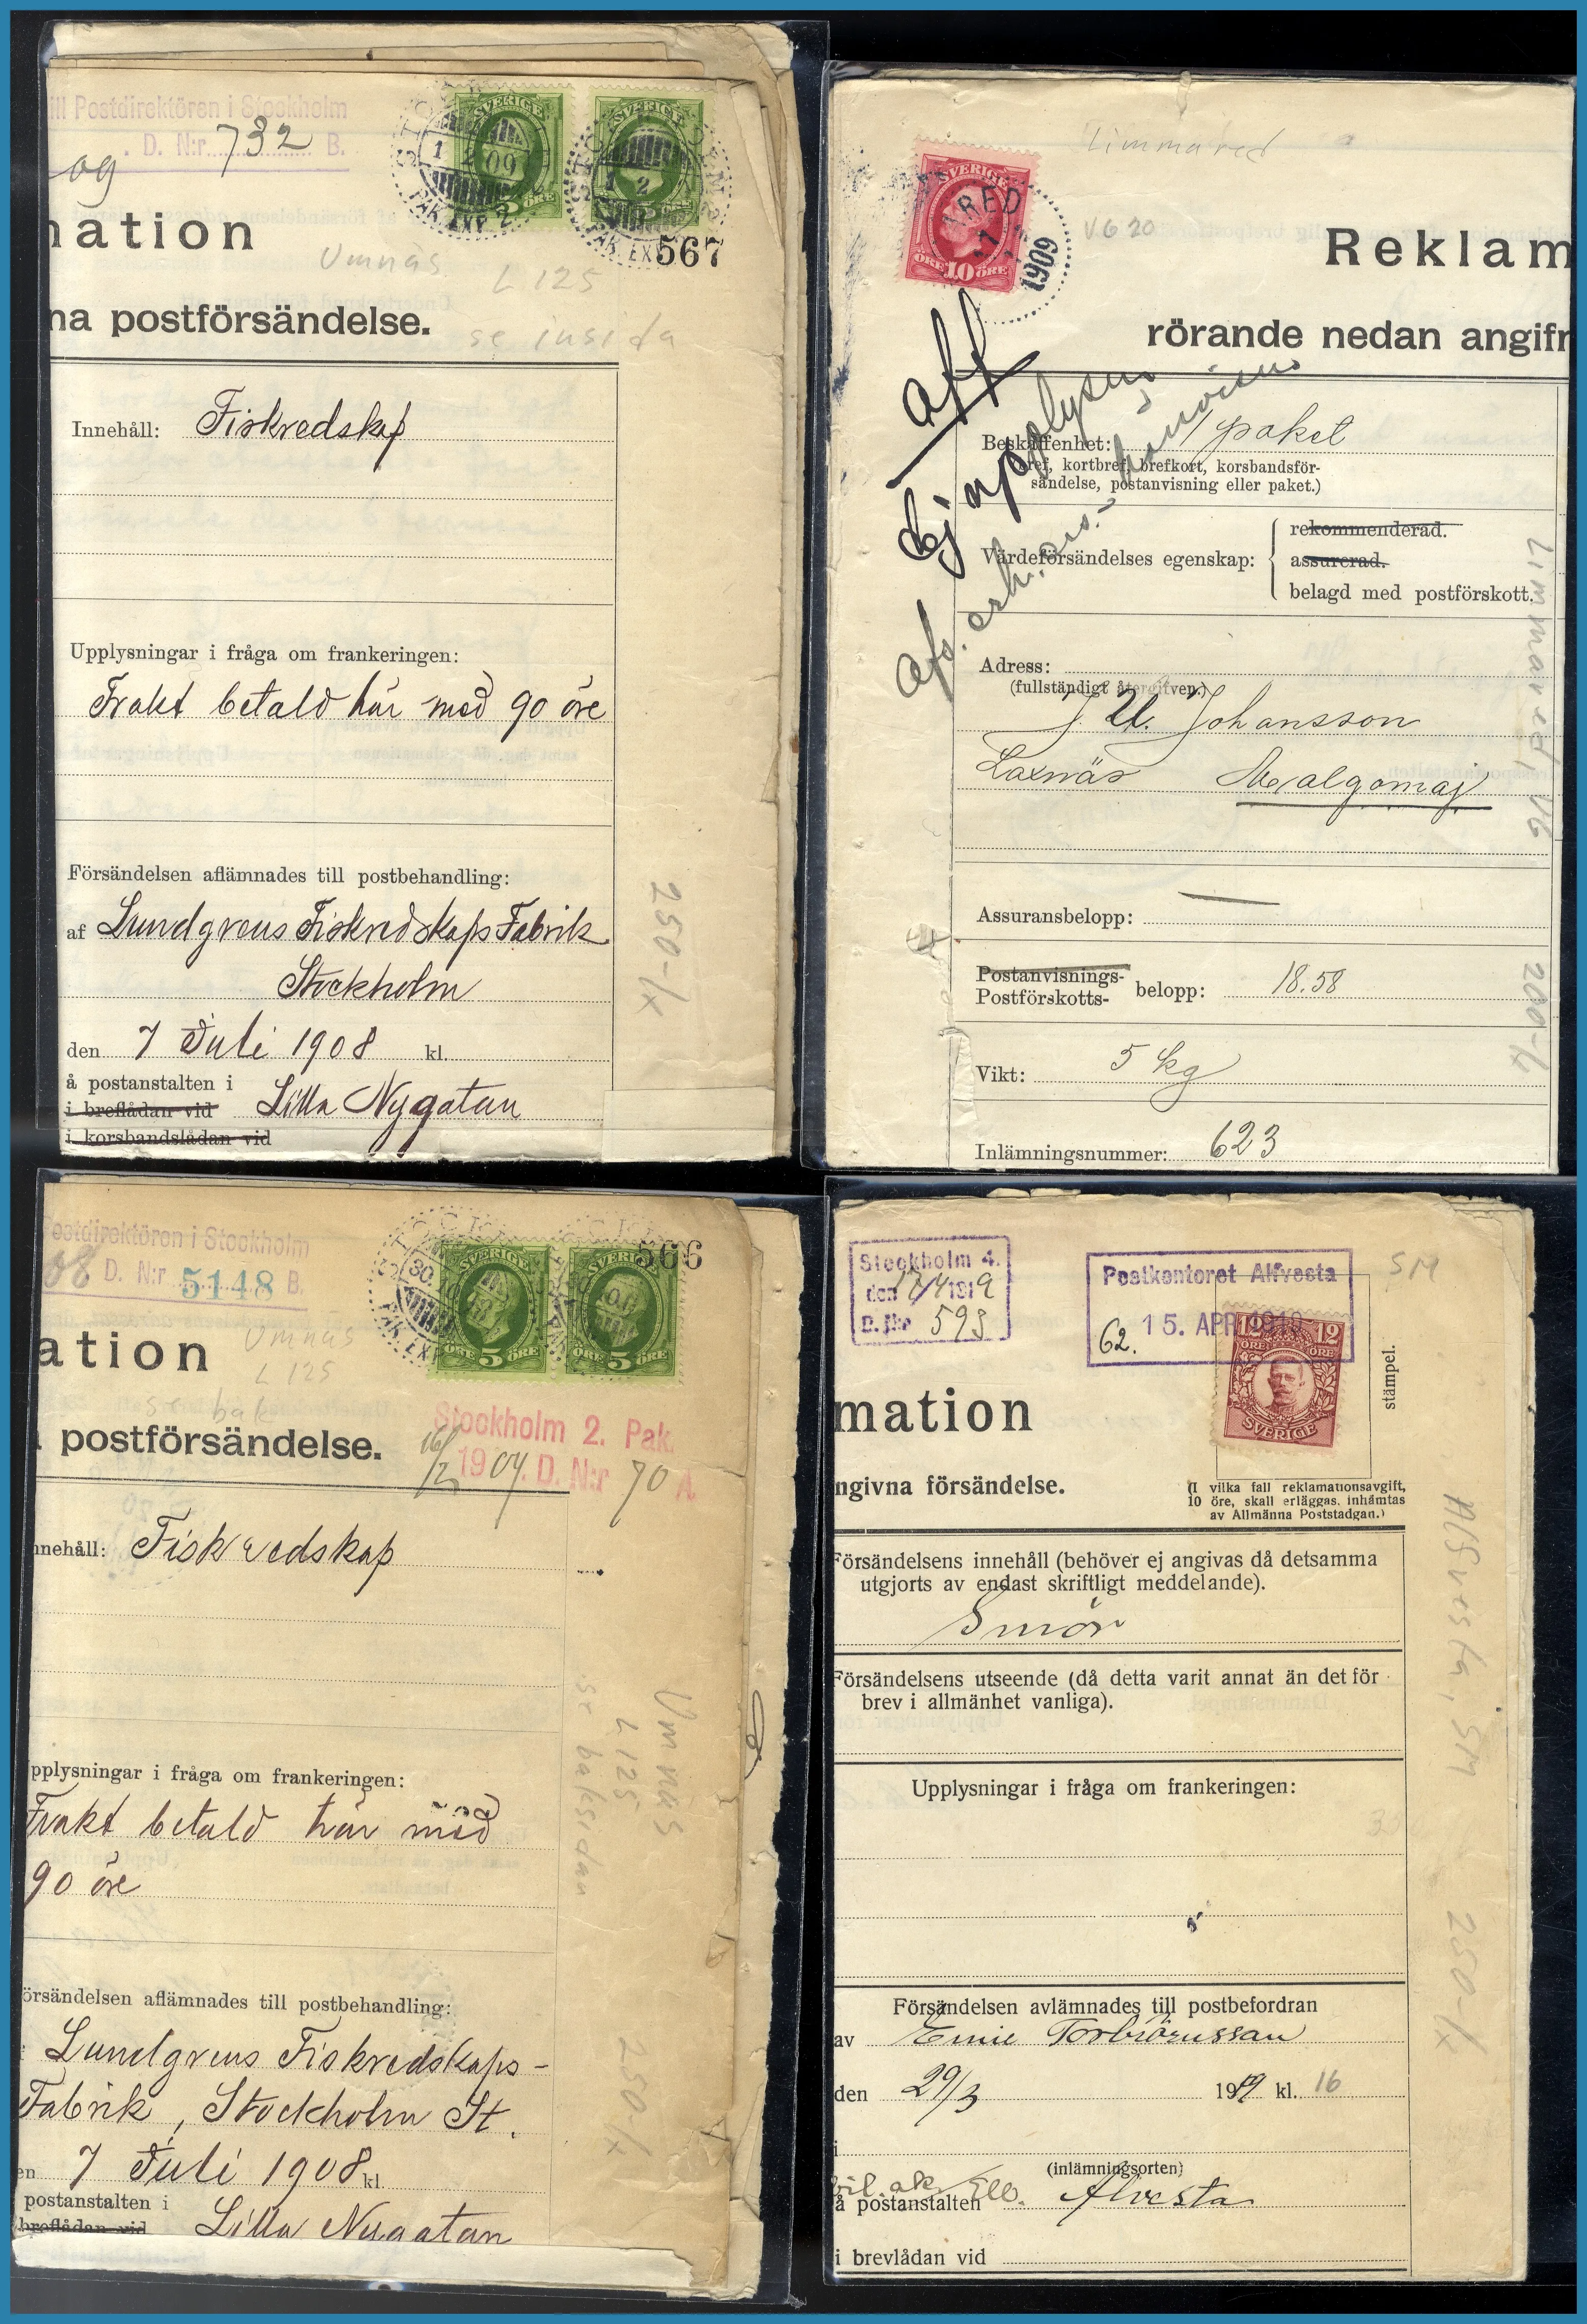 ill Postdirektören i Stockholm
D. N:r 732 B.
og
SVERIGE
SVERIGE
1 2 09
1 2
PAK. EXP. 2
567
nation
Umnäs
L 125
na postförsändelse.
se insida
Innehåll: Fiskredskap
Upplysningar i fråga om frankeringen:
Frakt betald här med 90 öre
Försändelsen aflämnades till postbehandling:
af Lundgrens Fiskredskaps Fabrik
Stockholm
den 7 Juli 1908 kl.
å postanstalten i
i breflådan vid Lilla Nygatan
i korsbandslådan vid
250-/4
Limmared
SVERIGE
RED
1909
ÖRE 10 ÖRE
VG 20
Reklam
rörande nedan angifn
Aff
Ej upplysn
Beskaffenhet: 1 paket
(Bref, kortbref, brefkort, korsbandsför-
sändelse, postanvisning eller paket.)
Värdeförsändelses egenskap:
rekommenderad.
assurerad.
belagd med postförskott.
Limmared, VG
Adress:
(fullständigt återgifven)
J. U. Johansson
Laxnäs Malgomaj
Assuransbelopp:
Postanvisnings-
Postförskotts- belopp: 18.58
Vikt: 5 kg
Inlämningsnummer: 623
Postdirektören i Stockholm
08 D. N:r 5148 B.
SVERIGE
SVERIGE
30.
ÖRE 5 ÖRE
ÖRE 5 ÖRE
PAK. EXP
566
ation
Umnäs
L 125
se bak
postförsändelse.
Stockholm 2. Pak.
16/12 1909. D. N:r 70 A
nnehåll: Fiskredskap
Umnäs
L 125
se baksidan
pplysningar i fråga om frankeringen:
Frakt betald här med
90 öre
örsändelsen aflämnades till postbehandling:
Lundgrens Fiskredskaps-
Fabrik, Stockholm St.
en 7 Juli 1908 kl
postanstalten i
breflådan vid Lilla Nygatan
250-/4
Stockholm 4.
den 17/4 1919
D. N:r 593
Postkontoret Alfvesta
62. 15. APR 1919
SM
12 12
ÖRE ÖRE
SVERIGE
stämpel.
mation
ngivna försändelse.
(I vilka fall reklamationsavgift,
10 öre, skall erläggas, inhämtas
av Allmänna Poststadgan.)
Försändelsens innehåll (behöver ej angivas då detsamma
utgjorts av endast skriftligt meddelande).
Smör
Försändelsens utseende (då detta varit annat än det för
brev i allmänhet vanliga).
Alvesta, SM
Upplysningar i fråga om frankeringen:
Försändelsen avlämnades till postbefordran
av Emie Torbiörnssan
den 29/3 1919 kl. 16
i
(inlämningsorten)
å postanstalten Alvesta
i brevlådan vid
250-/4